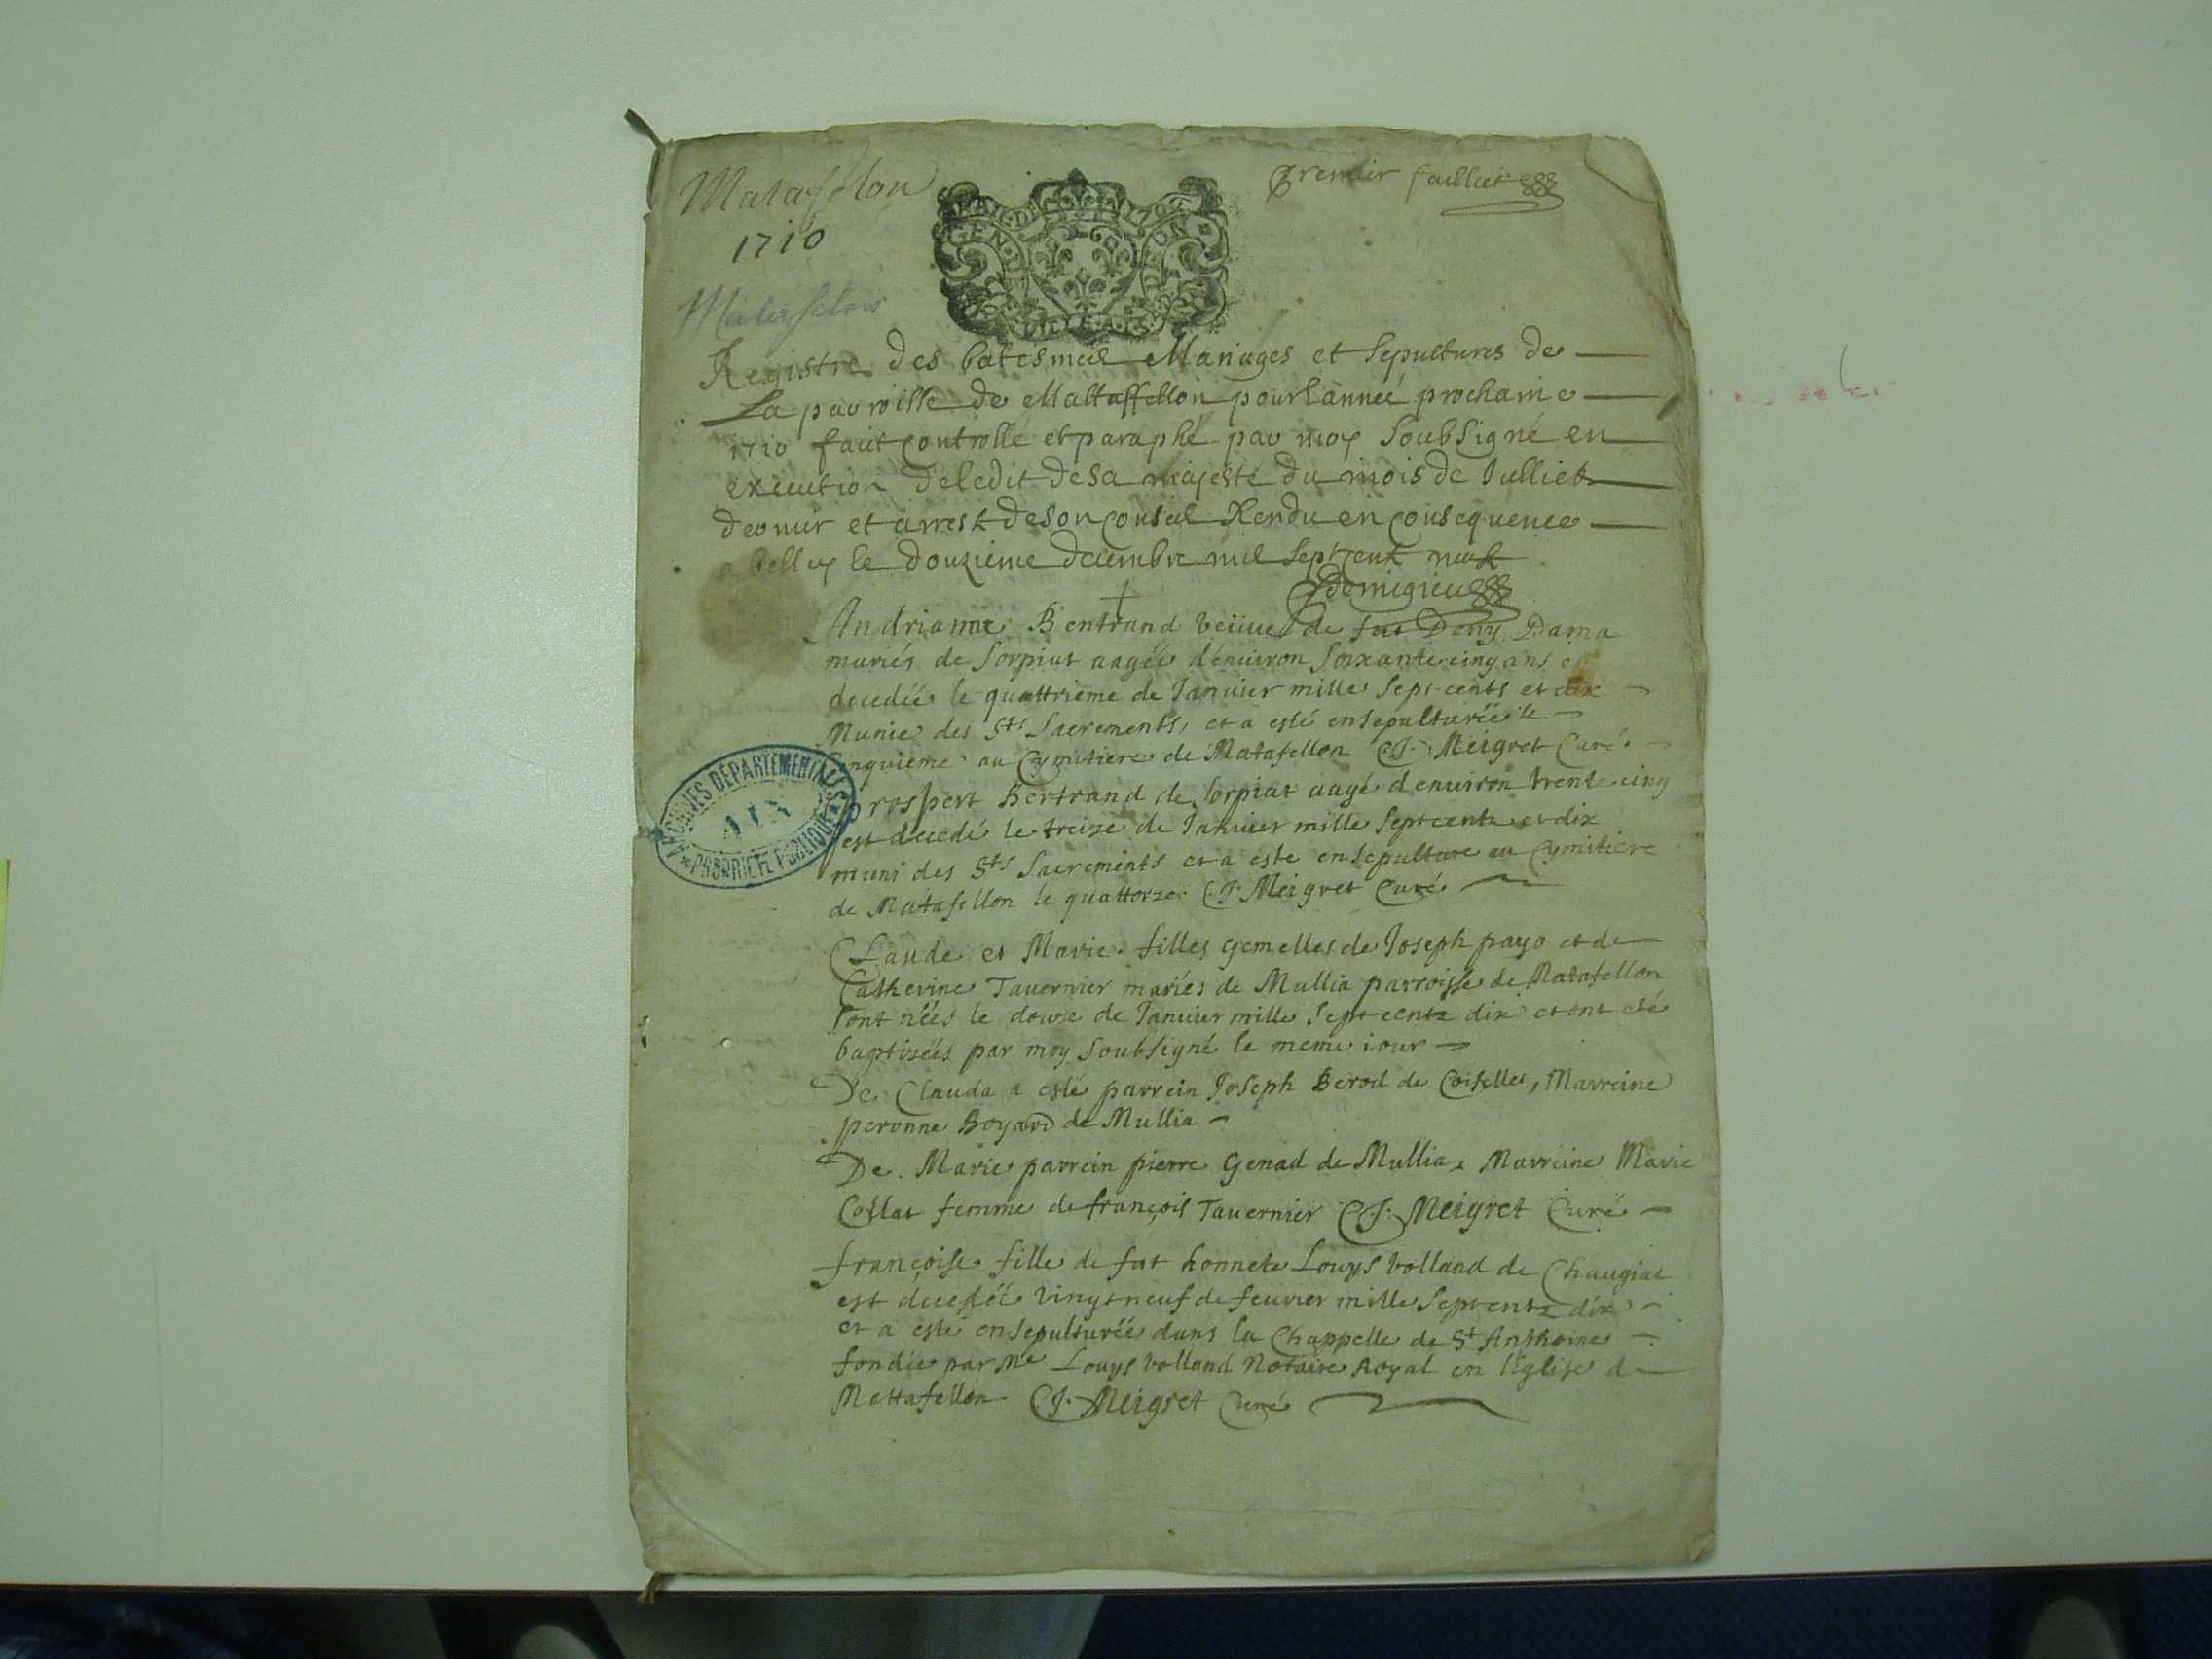 Matafelon
1710
Matafelon
premier feuillet
GEN
Registre des batesmes Mariages et Sepultures de
La parroisse de Mattaffellon pour l'année prochaine
1710 fait controllé et paraphé par moy soubsigné en
execution de ledit de sa majesté du mois de Julliet
dernier et arrest de son Conseil Rendu en Consequence
a Belley le douzieme decembre mil sept cent neuf
Demigieu
Andrianne Bertrand veüve de feu Deny Dama
mariés de Sorpiat aagée d'environ soixante cinq ans est
decedée le quattrieme de Janvier mille sept cents et dix
Munie des Sts Sacrements, et a esté ensepulturée le
cinquieme au Cymitiere de Matafellon CJ. Meigret Curé
prospert Bertrand de Sorpiat aagé d'environ trente cinq
est decedé le treize de Janvier mille sept centz et dix
muni des Sts Sacrements et a esté ensepulture au Cymitiere
de Matafellon le quattorze CJ. Meigret Curé
ARCHIVES DÉPARTEMENTALES
AIN
PROPRIÉTÉ PUBLIQUE
Claude et Marie filles gemelles de Joseph payo et de
Catherine Tavernier mariés de Mullia parroisse de Matafellon
sont nées le douze de Janvier mille sept centz dix et ont eté
baptizées par moy soubsigné le meme iour
De Clauda a esté parrein Joseph Berod de Coiselles, Marreine
peronne Boyard de Mullia
De Marie parrein pierre Genad de Mullia, Marreine Marie
Collat femme de françois Tavernier CJ. Meigret Curé
françoise fille de fut honnete Louys volland de Chaugiat
est decedée vingt neuf de feuvrier mille sept centz dix
et a esté ensepulturée dans la Chappelle de St Anthoine
fondée par Me Louys volland Notaire Royal en l'Eglise de
Mattafellon CJ. Meigret Curé